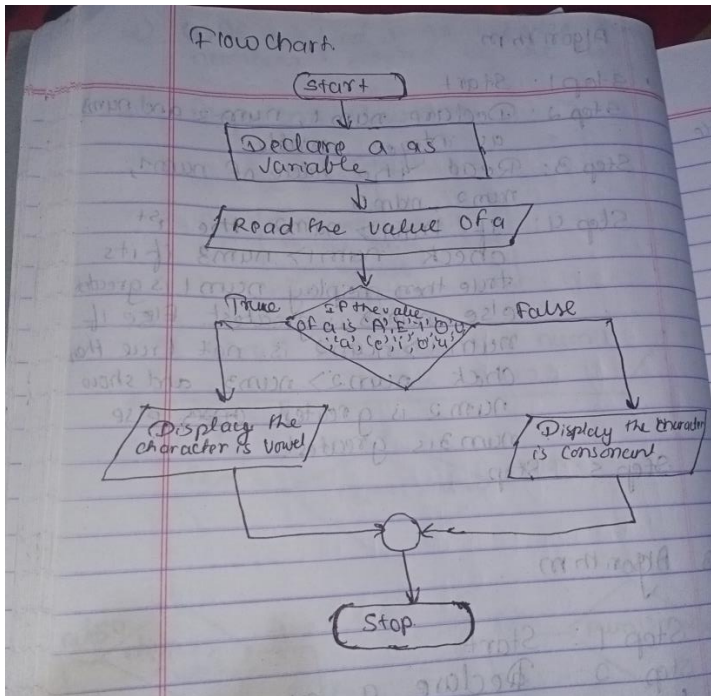 Flowchart.
Start
Declare a as
variable
Read the value of a
True
False
If the value
of a is 'A','E','i','O','U'
,'a','e','i','o','u'
Display the
character is vowel
Display the character
is consonant
Stop